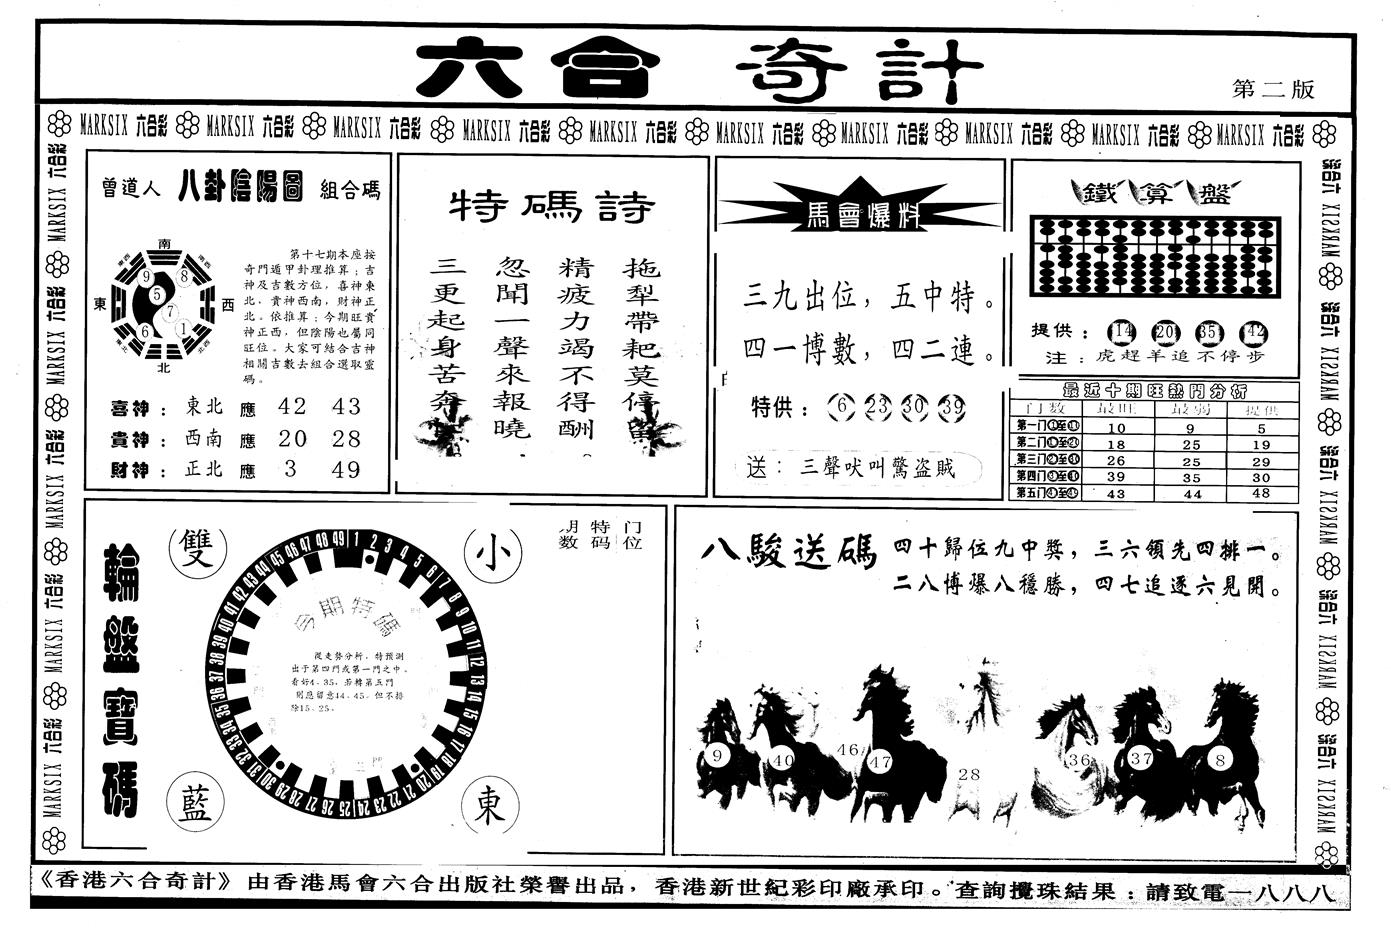 六合 奇計
第二版
MARKSIX 六合彩 MARKSIX 六合彩 MARKSIX 六合彩 MARKSIX 六合彩 MARKSIX 六合彩 MARKSIX 六合彩 MARKSIX 六合彩 MARKSIX 六合彩 MARKSIX 六合彩 MARKSIX 六合彩
曾道人 八卦陰陽圖 組合碼
南
東
西
北
9
8
5
7
6
1
第十七期本座按
奇門遁甲卦理推算；吉
神及吉數方位，喜神東
北，貴神西南，財神正
北。依推算；今期旺貴
神正西，但陰陽也屬同
旺位。大家可結合吉神
相關吉數去組合選取靈
碼。
喜神： 東北 應 42 43
貴神： 西南 應 20 28
財神： 正北 應 3 49
特碼詩
拖犁帶耙莫停留
精疲力竭不得酬
忽聞一聲來報曉
三更起身苦奔
馬會爆料
三九出位，五中特。
四一博數，四二連。
特供： 6 23 30 39
送： 三聲吠叫驚盜賊
鐵算盤
提供： 14 20 35 42
注：虎趕羊追不停步
最近十期旺熱門分析
门数 最旺 最弱 提供
第一门①至⑩ 10 9 5
第二门⑪至⑳ 18 25 19
第三门㉑至㉚ 26 25 29
第四门㉛至㊵ 39 35 30
第五门㊶至㊾ 43 44 48
輪盤寶碼
雙
小
藍
東
1 2 3 4 5 6 7 8 9 10 11 12 13 14 15 16 17 18 19 20 21 22 23 24 25 26 27 28 29 30 31 32 33 34 35 36 37 38 39 40 41 42 43 44 45 46 47 48 49
今期特碼
從走勢分析，特預測
出于第四門或第一門之中。
看好4、35。若轉第五門
則應留意14、45。但不排
除15、25。
期数 特码 门位
八駿送碼
四十歸位九中獎，三六領先四排一。
二八博爆八穩勝，四七追逐六見開。
9
40
46
47
28
36
37
8
《香港六合奇計》由香港馬會六合出版社榮譽出品，香港新世紀彩印廠承印。查詢攪珠結果：請致電一八八八